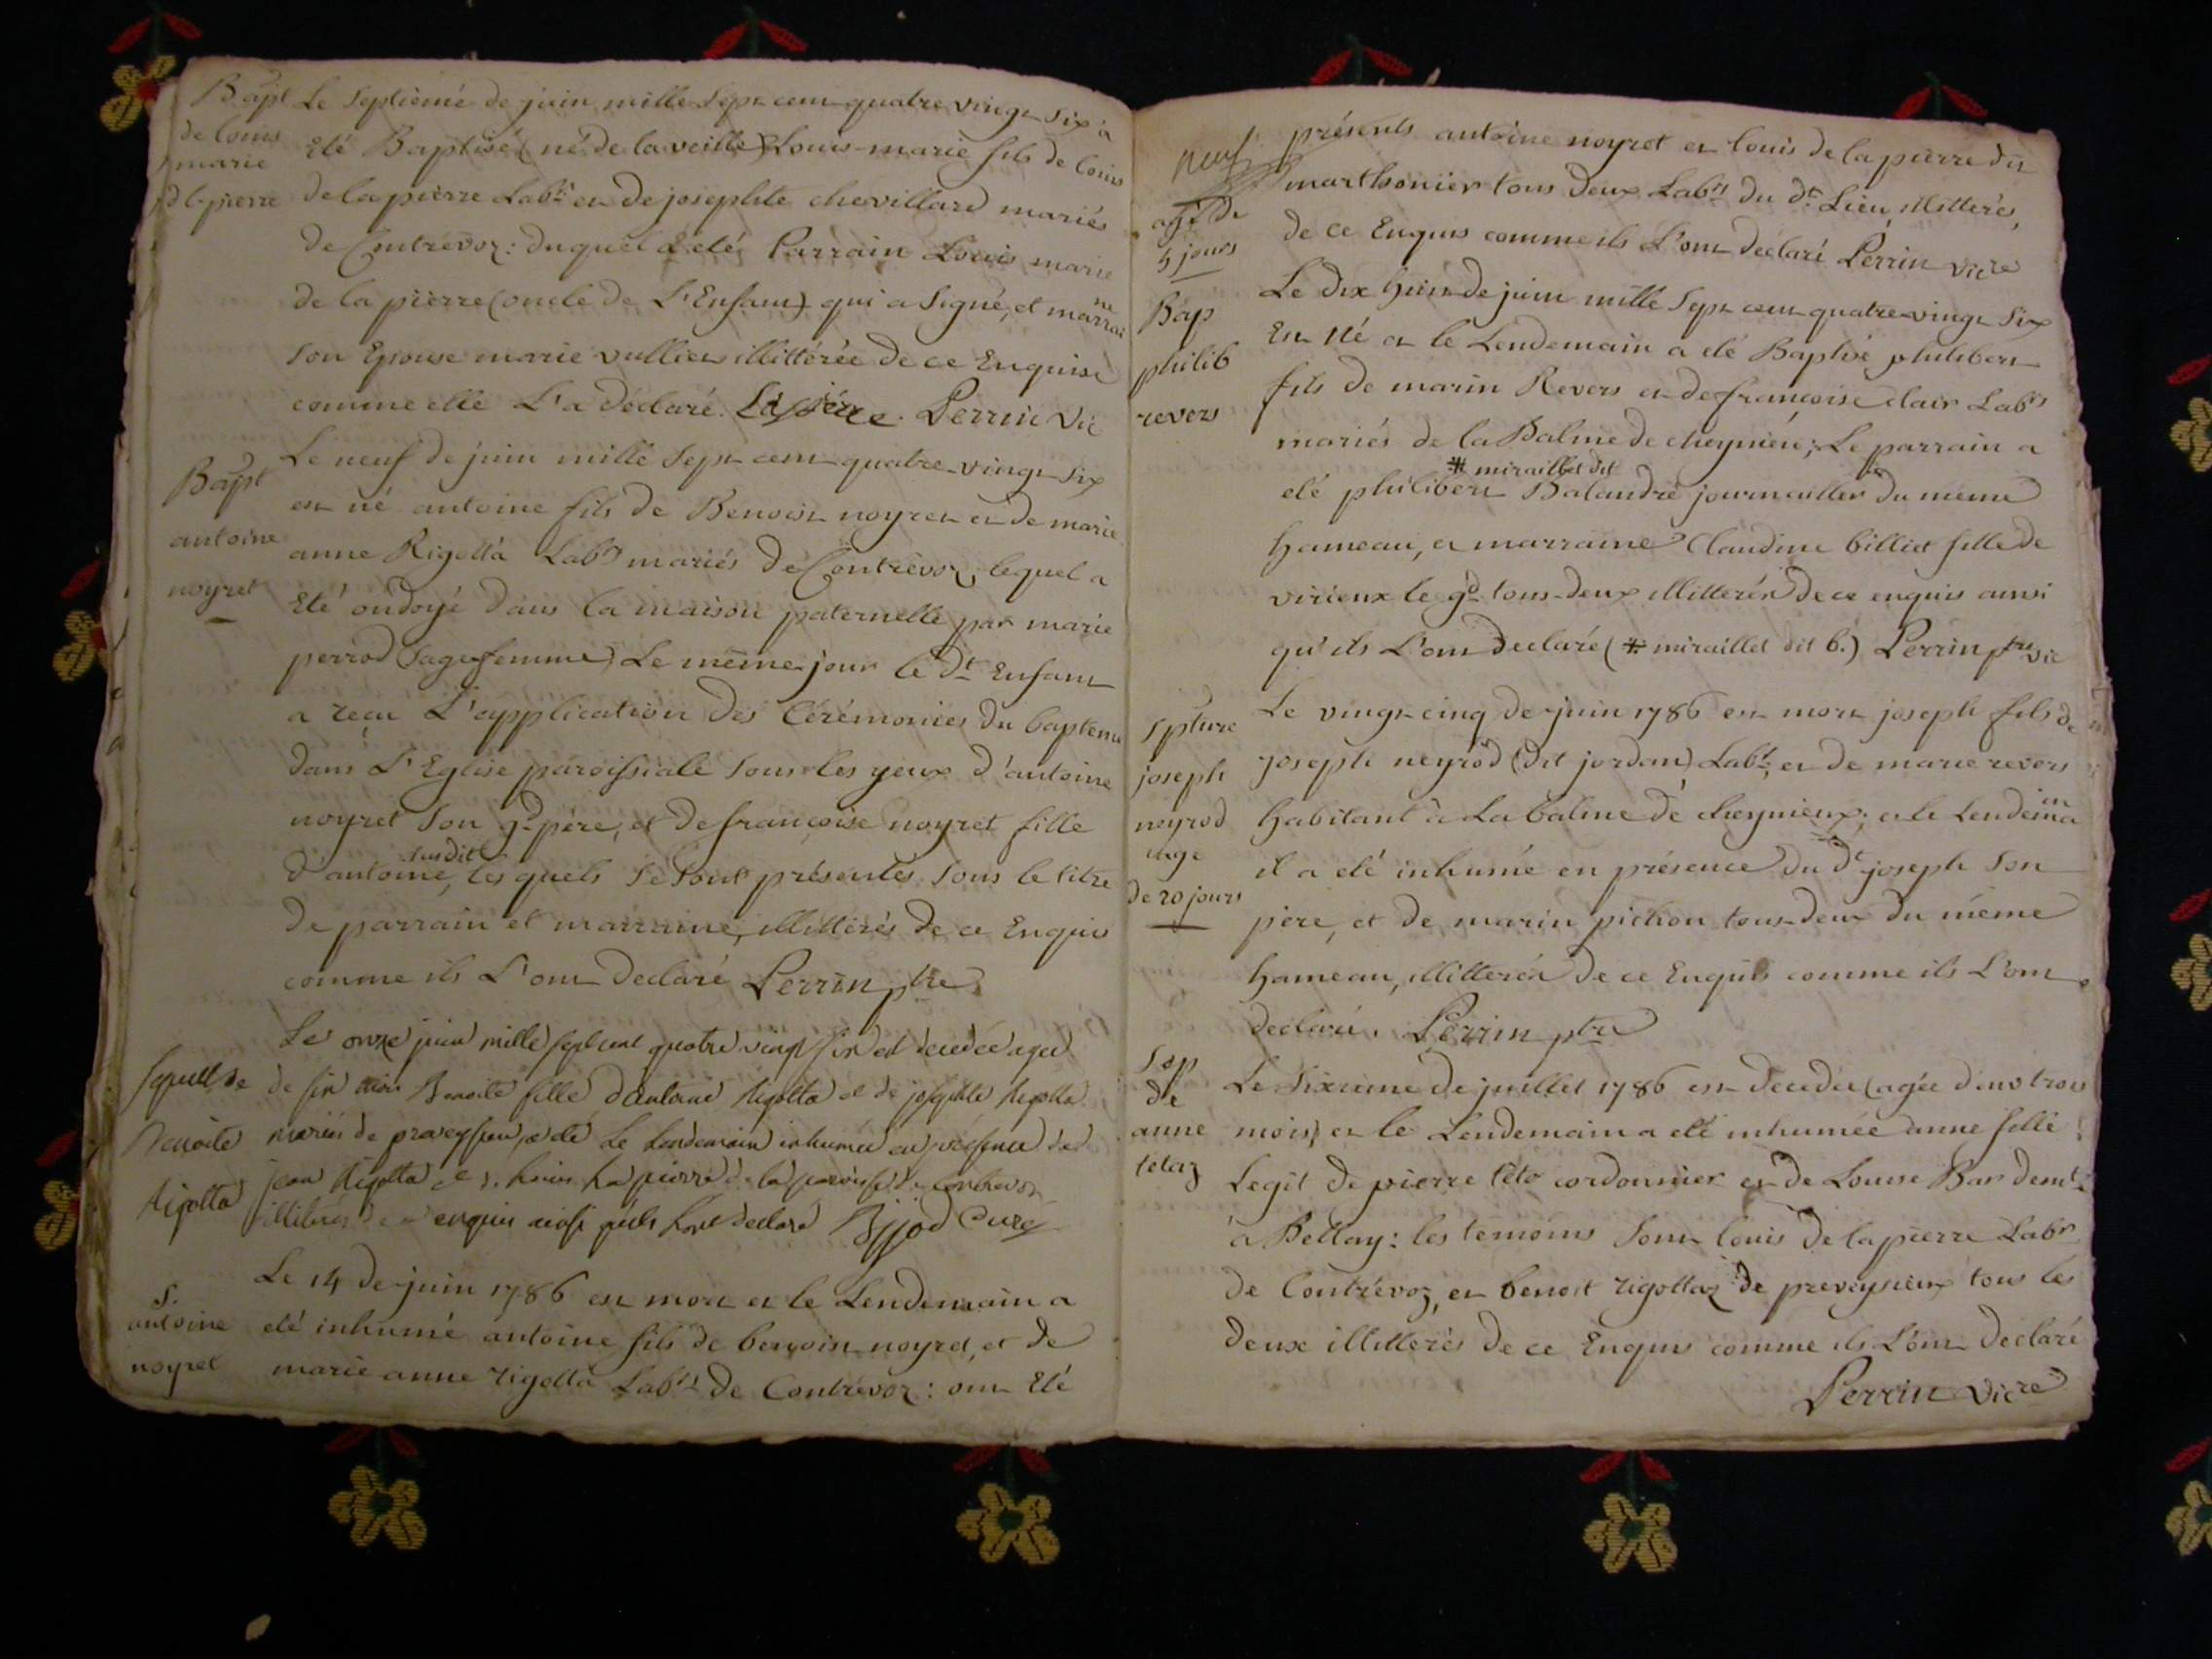 Bapt
de louis
marie
d l-pierre
Le Septiemé de juin mille Sept cent quatre vingt six a
Eté Baptisé (né de la veille) Louis-marie fils de louis
de la pierre Lab.r et de josephte chevillard mariés
de Contrevoz: duquel a eté Parrain Louis marie
de la pierre (oncle de L'Enfant) qui a Signé, et marraine
Son Epouse marie vulliet illittérée de ce Enquise
comme elle L'a déclaré. Lapierre. Perrin Vic
Bapt
antoine
noyret
Le neuf de juin mille Sept cent quatre-vingt-six
est né antoine fils de Benoist noyret et de marie
anne Rigotta Labrs mariés de Contrevoz, lequel a
Eté ondoyé dans la maison paternelle par marie
perrod (sage-femme) Le même jour le dt Enfant
a reçu L'application des Cérémonies du baptême
dans L'Eglise paroissiale Sous les yeux d'antoine
noyret Son gd père, et de françoise noyret fille
d'antoine susdit, les quels se sont présentés Sous le titre
de parrain et marraine, illittérés de ce Enquis
comme ils L'ont Declaré Perrin ptre
sepult de
Benoite
Rigotta
Le onze juin mille sept cent quatre vingt six est decedée agée
de six mois Benoite fille d'antoine Rigotta et de josephte Rigotta
mariés de preveysieu, a eté Le Lendemain inhumée en présence de
jean Rigotta et de louis La pierre de la paroisse de Contrevoz
illitérés de ce enquis ainsi qu'ils L'ont declaré Curé
S.
antoine
noyret
Le 14 de juin 1786 est mort et le Lendemain a
eté inhumé antoine fils de benoist noyret, et de
marie anne rigotta Labrs de Contrevoz: ont Eté
neuf
agé de
5 jours
présents antoine noyret et louis de la pierre dit
marthonier tous deux Labrs du dt Lieu, illitterés,
de ce Enquis comme ils L'ont déclaré Perrin vicre
Bap
philib
revers
Le dix huit de juin mille Sept cent quatre-vingt Six
Est Né et le Lendemain a eté Baptisé philibert
fils de marin Revers et de françoise clair Labrs
mariés de la Balme de cheynieu; Le parrain a
eté philibert # miraillet dit Balandré journallier du même
hameau, et marraine Claudine billiet fille de
virieux le gd tous-deux illitterés de ce enquis ainsi
qu'ils L'ont Declaré (# miraillet dit b.) Perrin ptre vic
Spture
joseph
neyrod
age
de 20 jours
Le vingt-cinq de juin 1786 est mort joseph fils de
joseph neyrod (dit jordan) Labr, et de marie revers
habitant à La balme de cheynieux; et le Lendemain
il a eté inhumé en présence du dt joseph Son
père, et de marin pichon tous-deux du même
hameau, illitterés de ce Enquis comme ils L'ont
declaré. Perrin ptre
Sep
de
anne
tetaz
Le Sixieme de juillet 1786 est Decedée (agée d'env trois
mois) et le Lendemain a eté inhumée anne fille
Legit de pierre této cordonnier et de Louise Bar demt
à Bellay: les temoins Sont louis de la pierre Labr
de Contrévoz, et benoit rigottaz de preveysieux tous les
deux illitterés de ce Enquis comme ils L'ont declaré
Perrin Vicre